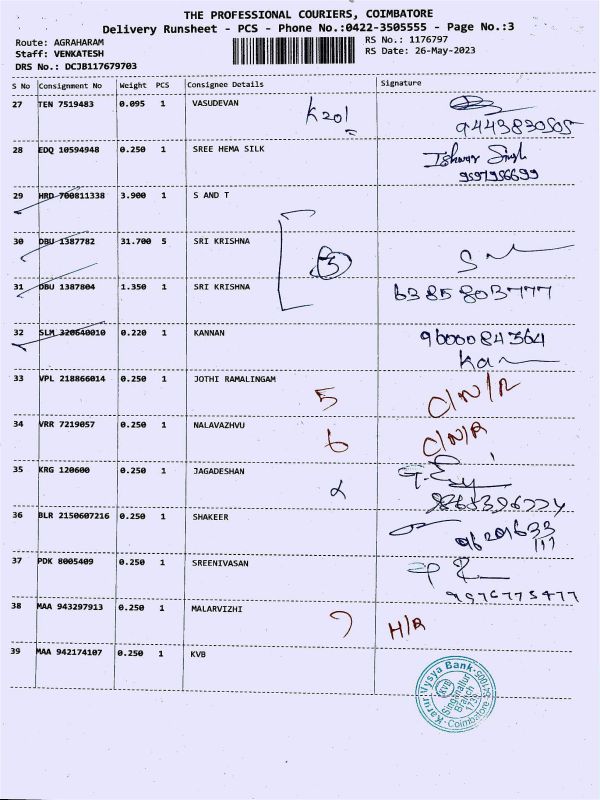 THE PROFESSIONAL COURIERS, COIMBATORE
Delivery Runsheet - PCS - Phone No.:0422-3505555 - Page No.:3
Route: AGRAHARAM
RS No.: 1176797
Staff: VENKATESH
RS Date: 26-May-2023
DRS No.: DCJB117679703
S No Consignment No Weight PCS Consignee Details Signature
27 TEN 7519483 0.095 1 VASUDEVAN
K201
9443830505
28 EDQ 10594948 0.250 1 SREE HEMA SILK
Ishwar Singh
29 HRD 700811338 3.900 1 S AND T
30 DBU 1387782 31.700 5 SRI KRISHNA
31 DBU 1387804 1.350 1 SRI KRISHNA
6385803777
32 SLM 320640010 0.220 1 KANNAN
9600084364
33 VPL 218866014 0.250 1 JOTHI RAMALINGAM
5 C/N/R
34 VRR 7219057 0.250 1 NALAVAZHVU
6 C/N/R
35 KRG 120600 0.250 1 JAGADESHAN
36 BLR 2150607216 0.250 1 SHAKEER
96291633
111
37 PDK 8005409 0.250 1 SREENIVASAN
9976775477
38 MAA 943297913 0.250 1 MALARVIZHI
H/R
39 MAA 942174107 0.250 1 KVB
Karur Vysya Bank
KVB
Singanallur
Branch
Coimbatore